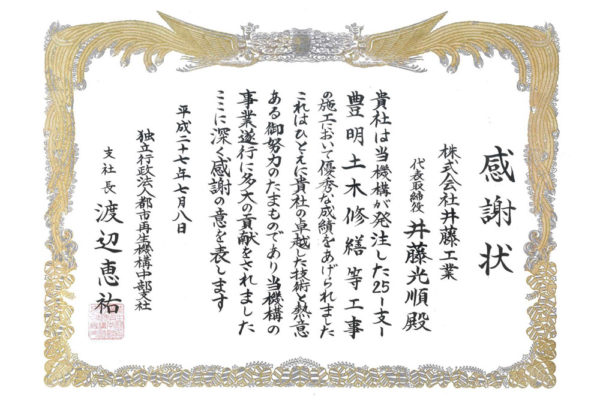 感謝状
株式会社井藤工業
代表取締役 井藤光順殿
貴社は当機構が発注した25-支-
豊明土木修繕等工事
の施工において優秀な成績をあげられました
これはひとえに貴社の卓越した技術と熱意
ある御努力のたまものであり当機構の
事業遂行に多大の貢献をされました
ここに深く感謝の意を表します
平成二十七年七月八日
独立行政法人都市再生機構中部支社
支社長 渡辺恵祐